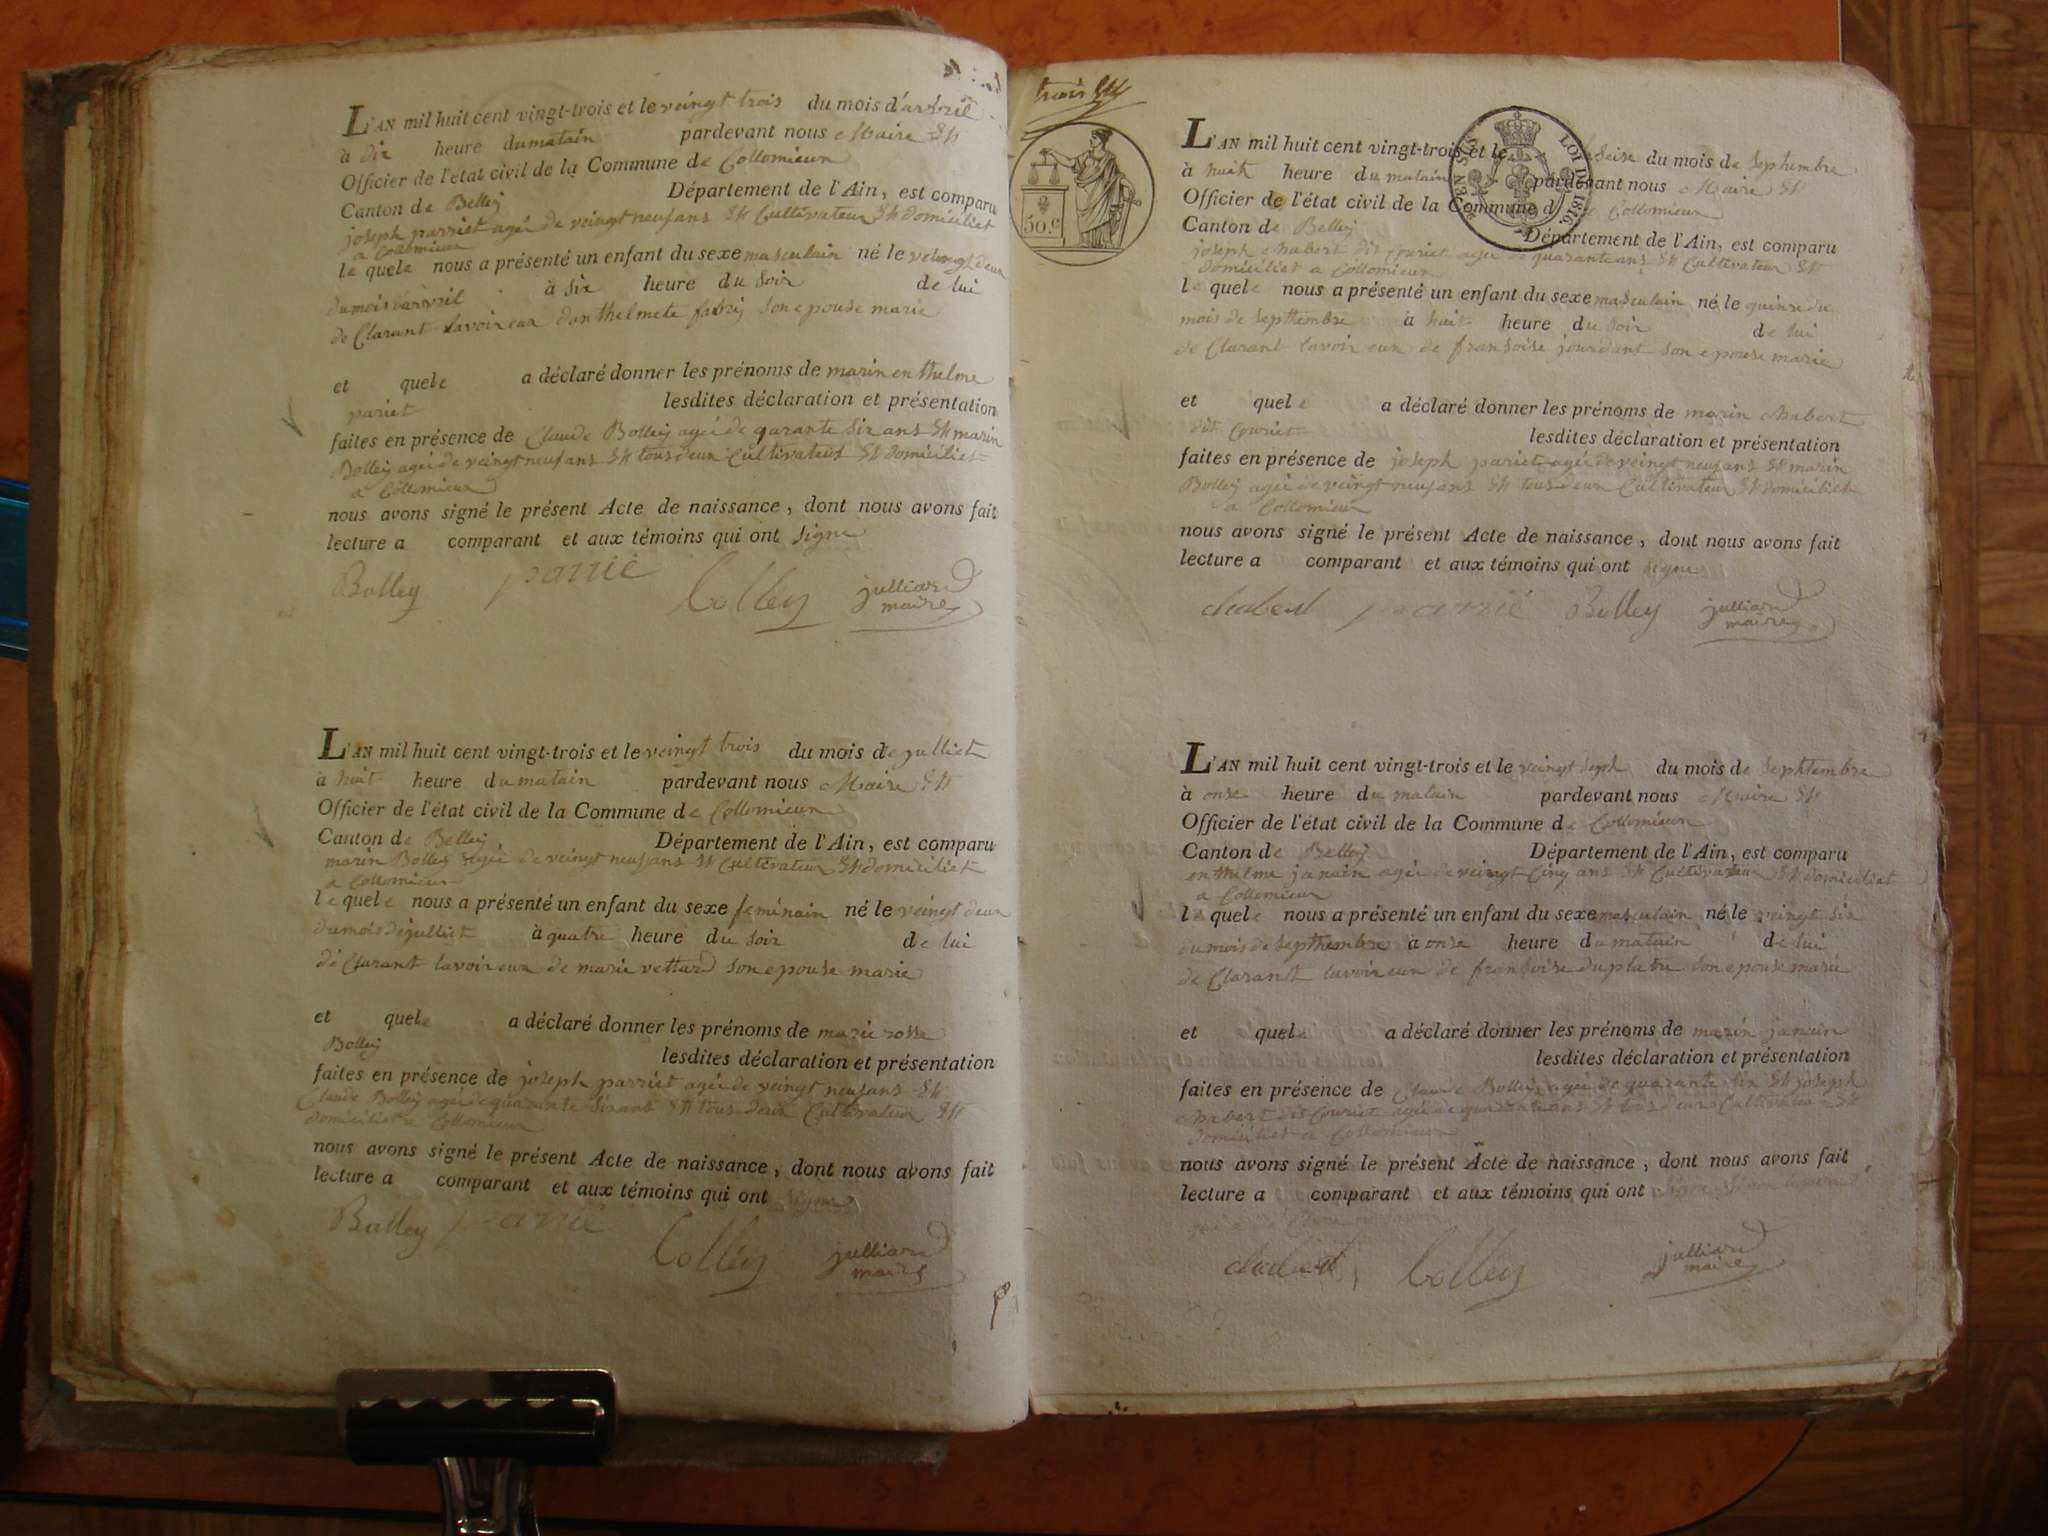 L'AN mil huit cent vingt-trois et le veingt trois du mois d'avril
à dix heure du matain pardevant nous Maire Et
Officier de l'état civil de la Commune de Collomieux
Canton de Belley Département de l'Ain, est comparu
joseph parriet agée de veingt neuf ans Et Cultivateur Et domiciliet
a Collomieux
le quele nous a présenté un enfant du sexe masculain né le veeingt deux
du mois d'avril à six heure du soir de lui
de Clarant lavoir eux danthelmete fabry son epouse marie
et quele a déclaré donner les prénoms de marin enthelme
pariet lesdites déclaration et présentation
faites en présence de Claude Bolley agée de qarante six ans Et marin
Bolley agée de veingt neuf ans Et tous deux Cultivateur Et domiciliet
a Collomieux
nous avons signé le présent Acte de naissance, dont nous avons fait
lecture a comparant et aux témoins qui ont signe
Bolley parrié bolley julliand
maire
L'AN mil huit cent vingt-trois et le veingt trois du mois de julliet
à huit heure du matain pardevant nous Maire Et
Officier de l'état civil de la Commune de Collomieux
Canton de Belley Département de l'Ain, est comparu
marin Bolley agée de veingt neuf ans Et Cultivateur Et domiciliet
a Collomieux
le quele nous a présenté un enfant du sexe feminain né le veingt deux
du mois de julliet à quatre heure du soir de lui
de Clarant lavoir eux de marie vettard son epouse marie
et quele a déclaré donner les prénoms de marie rosse
Bolley lesdites déclaration et présentation
faites en présence de joseph parriet agée de veingt neuf ans Et
Claude Bolley agée de quarante six ans Et tous deux Cultivateur Et
domiciliet a Collomieux
nous avons signé le présent Acte de naissance, dont nous avons fait
lecture a comparant et aux témoins qui ont signe
Bolley parrié bolley julliand
maire
trois
50.c
LOI DE 1816
L'AN mil huit cent vingt-trois et le seise du mois de Sephtembre
à huit heure du matain pardevant nous Maire Et
Officier de l'état civil de la Commune de Collomieux
Canton de Belley Département de l'Ain, est comparu
joseph Chabert dit Couriet agée de quarante ans Et Cultivateur Et
domiciliet a Collomieux
le quele nous a présenté un enfant du sexe masculain né le quinze du
mois de Septhembre à huit heure du soir de lui
de Clarant lavoir eux de fransoise jourdant son epouse marie
et quele a déclaré donner les prénoms de marin Chabert
dit Couriet lesdites déclaration et présentation
faites en présence de joseph pariet agée de veingt neuf ans Et marin
Bolley agée de veingt neuf ans Et tous deux Cultivateur Et domiciliet
a Collomieux
nous avons signé le présent Acte de naissance, dont nous avons fait
lecture a comparant et aux témoins qui ont signe
chabert parrié Bolley julliand
maire
L'AN mil huit cent vingt-trois et le veingt seph du mois de Sephtembre
à onse heure du matain pardevant nous Maire Et
Officier de l'état civil de la Commune de Collomieux
Canton de Belley Département de l'Ain, est comparu
enthelme janain agée de veingt Cinq ans Et Cultivateur Et domiciliet
a Collomieux
le quele nous a présenté un enfant du sexe masculain né le veingt six
du mois de Septhembre à onse heure du matain de lui
de Clarant lavoir eux de fransoise duplatre son epouse marie
et quele a déclaré donner les prénoms de marin janain
lesdites déclaration et présentation
faites en présence de Claude Bolley agée de quarante six Et joseph
Chabert dit Couriet agée de quarante ans Et tous deux Cultivateur Et
domiciliet a Collomieux
nous avons signé le présent Acte de naissance, dont nous avons fait
lecture a comparant et aux témoins qui ont signe
chabert bolley julliand
maire